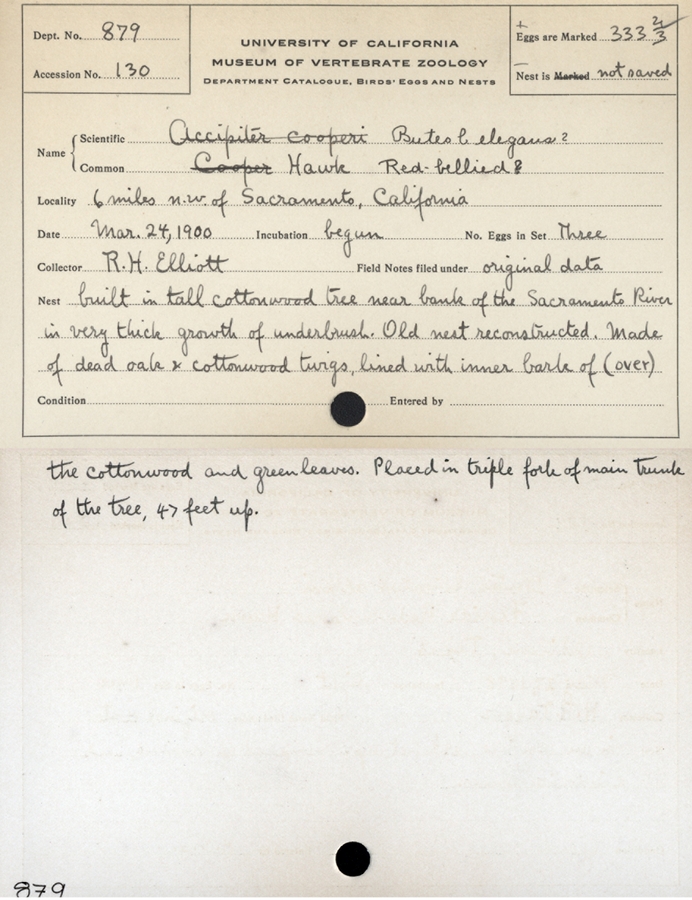 Dept. No. 879
Accession No. 130
UNIVERSITY OF CALIFORNIA
MUSEUM OF VERTEBRATE ZOOLOGY
DEPARTMENT CATALOGUE, BIRDS' EGGS AND NESTS
Eggs are Marked 333 2/3
Nest is Marked not saved
Name
Scientific Accipiter cooperi Buteo l. elegans?
Common Cooper Hawk Red-bellied?
Locality 6 miles n.w. of Sacramento, California
Date Mar. 24, 1900 Incubation begun No. Eggs in Set Three
Collector R.H. Elliott Field Notes filed under original data
Nest built in tall cottonwood tree near bank of the Sacramento River
in very thick growth of underbrush. Old nest reconstructed. Made
of dead oak & cottonwood twigs, lined with inner bark of (over)
Condition Entered by
the cottonwood and green leaves. Placed in triple fork of main trunk
of the tree, 47 feet up.
879